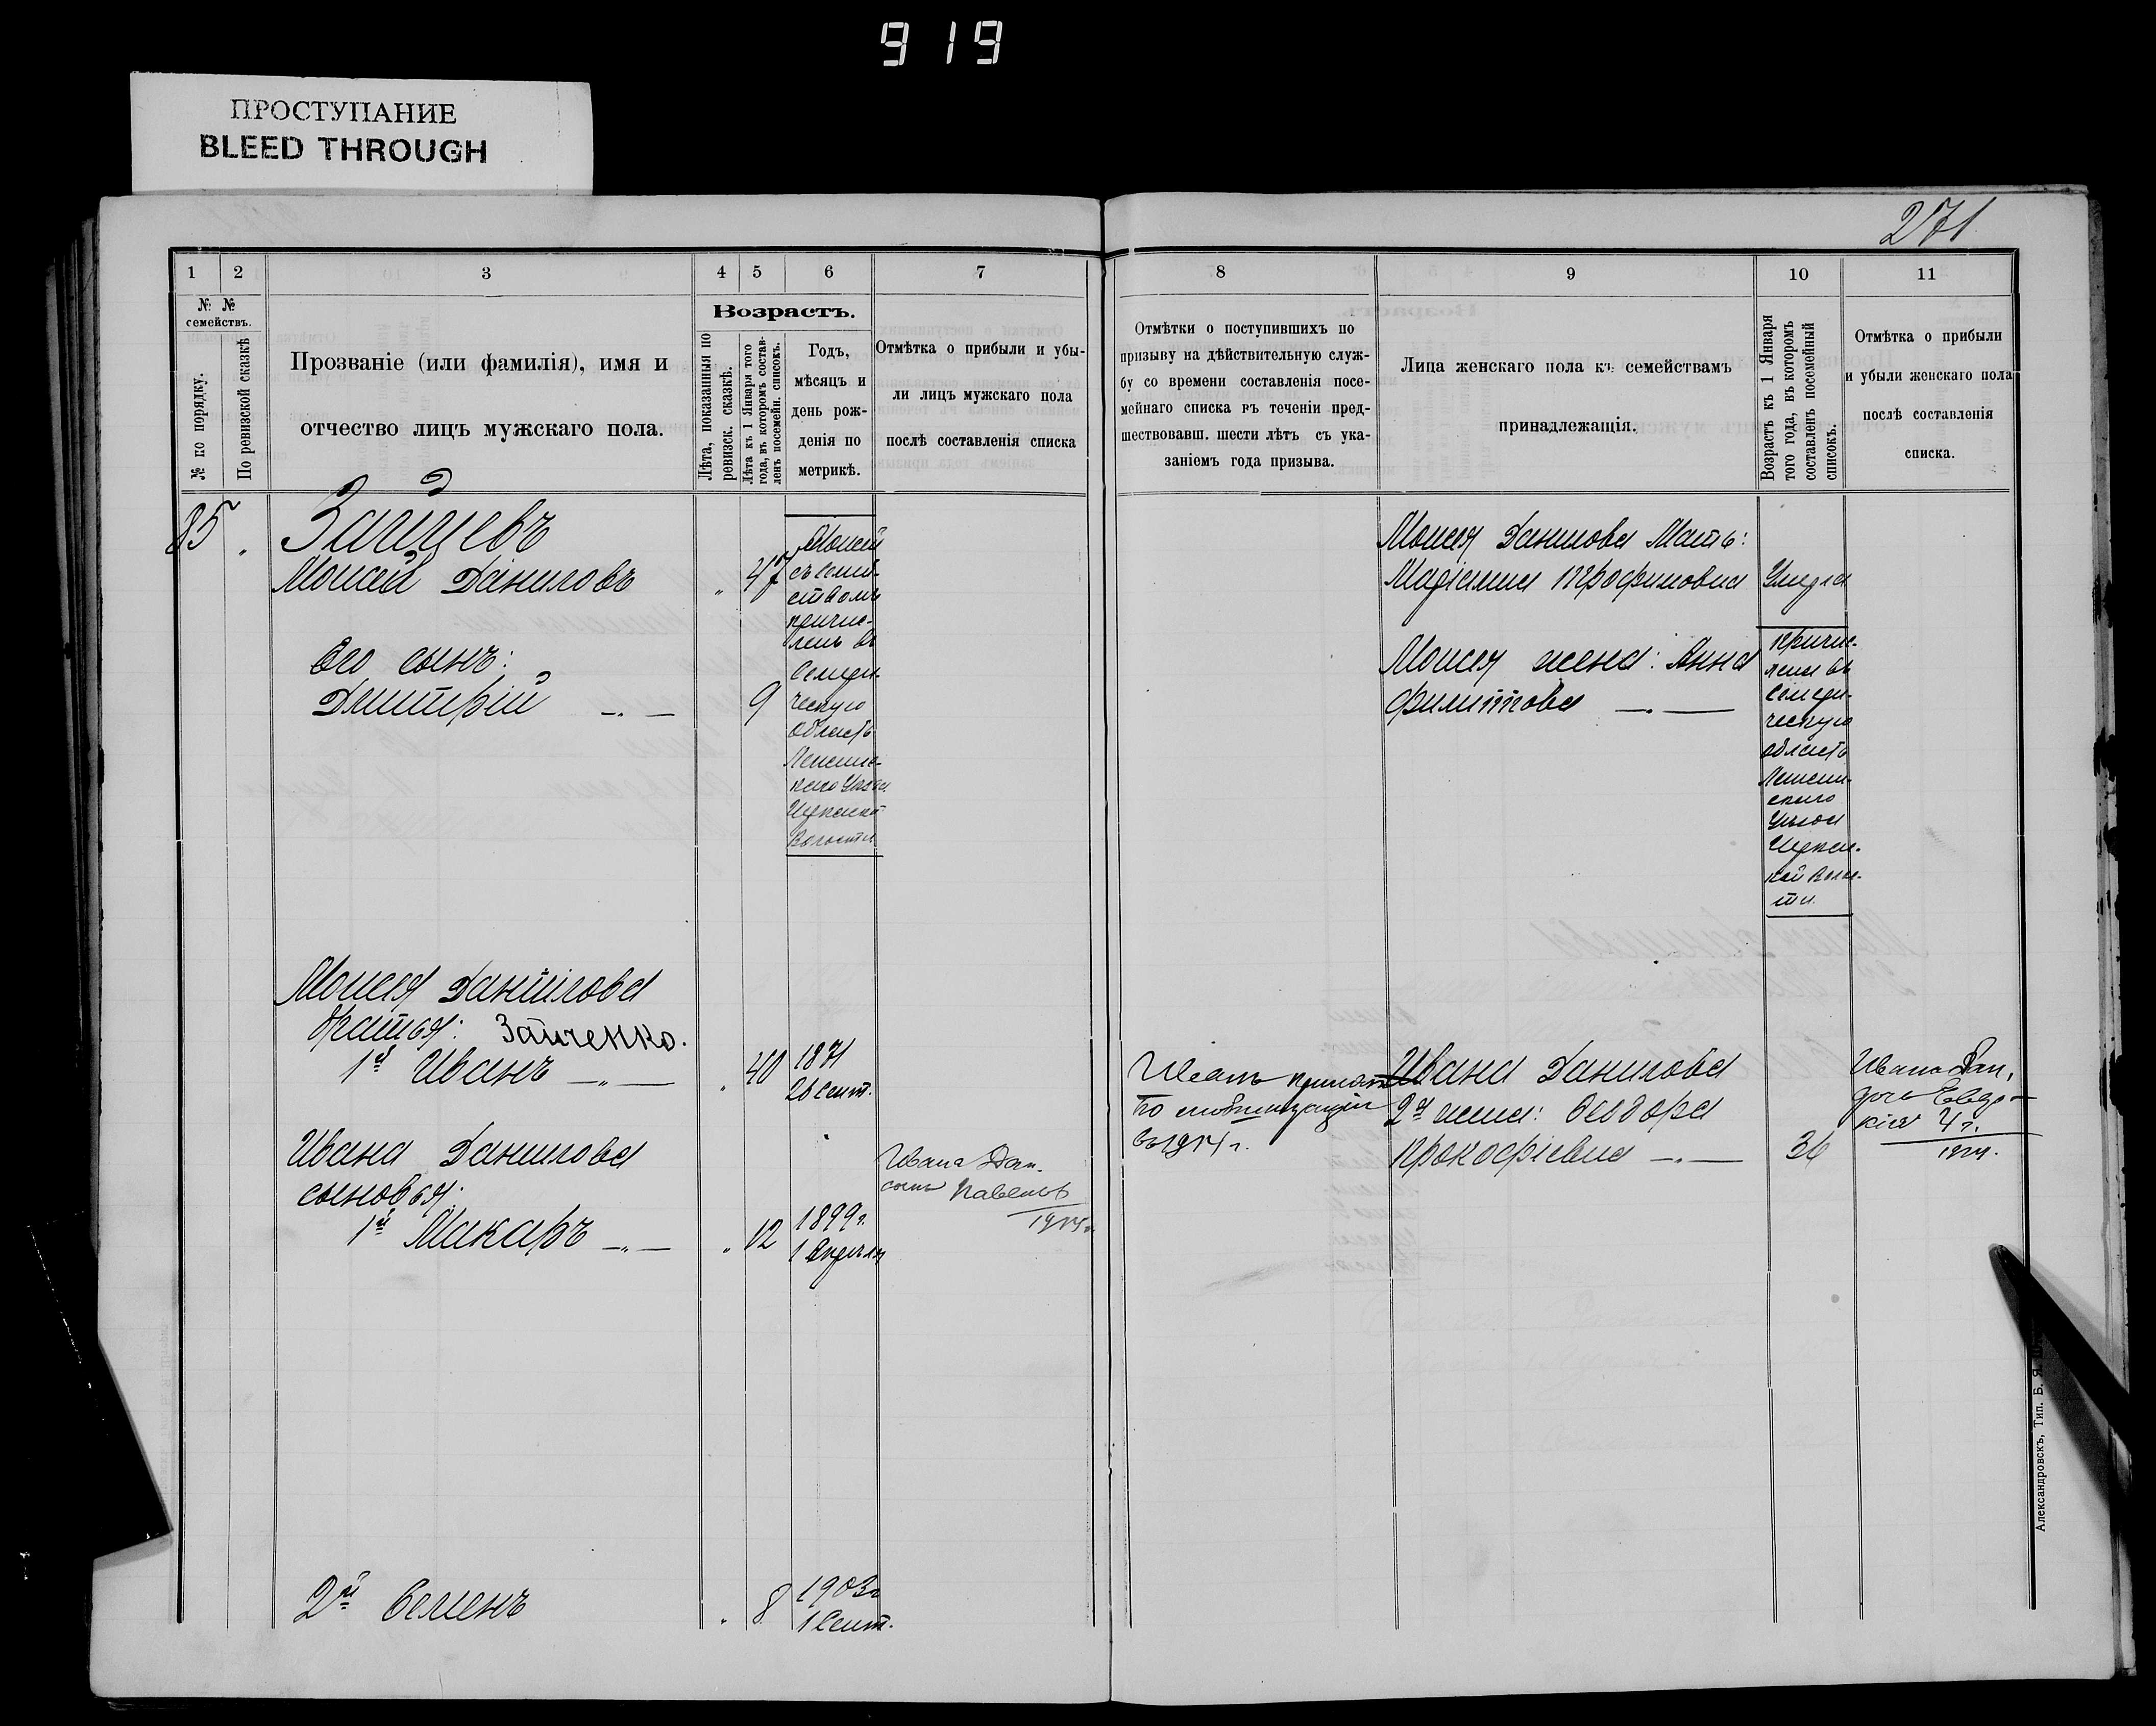 919
ПРОСТУПАНИЕ
BLEED THROUGH
271
1 2 3 4 5 6 7
№ №
семействъ.
№ по порядку.
По ревизской сказкѣ
Прозваніе (или фамилія), имя и
отчество лицъ мужскаго пола.
Возрастъ.
Лѣта, показанныя по
ревизск. сказкѣ.
Лѣта къ 1 Января того
года, въ которомъ состав-
ленъ посемейн. списокъ.
Годъ,
мѣсяцъ и
день рож-
денія по
метрикѣ.
Отмѣтка о прибыли и убы-
ли лицъ мужскаго пола
послѣ составленія списка
85 "
Зайцевъ
Моисей Даниловъ " 47
Его сынъ:
Дмитрій —"— 9
Моисей
съ семей-
ствомъ
причис-
ленъ въ
Семирѣ-
ческую
область
Уѣзда
Волости
Моисея Данилова
братья: Зайченко.
1й Иванъ —"— " 40 1871
26 Сент.
Ивана Данилова
сыновья:
1й Макаръ —"— " 12 1899г.
1 Апрѣля
Ивана Дан.
сынъ Павелъ
1914г.
2й Семенъ " 8 1903г
1 Сент.
8 9 10 11
Отмѣтки о поступившихъ по
призыву на дѣйствительную служ-
бу со времени составленія посе-
мейнаго списка въ теченіи пред-
шествовавш. шести лѣтъ съ ука-
заніемъ года призыва.
Лица женскаго пола къ семействамъ
принадлежащія.
Возрастъ къ 1 Января
того года, въ которомъ
составленъ посемейный
списокъ.
Отмѣтка о прибыли
и убыли женскаго пола
послѣ составленія
списка.
Моисея Данилова Мать:
Трофимовна Умерла
Моисея жена: Анна
Филиппова —"—
причис-
лена въ
Семирѣ-
ческую
область
Уѣзда
Волос-
ти.
Иванъ принятъ
по мобилизаціи
въ 1914 г.
Ивана Данилова
2я жена: Феодора
Прокофіевна —"— 36
Ивана Дан.
дочь Евдо-
кія 4 г.
1914.
Александровскъ, Тип. Б. Я.